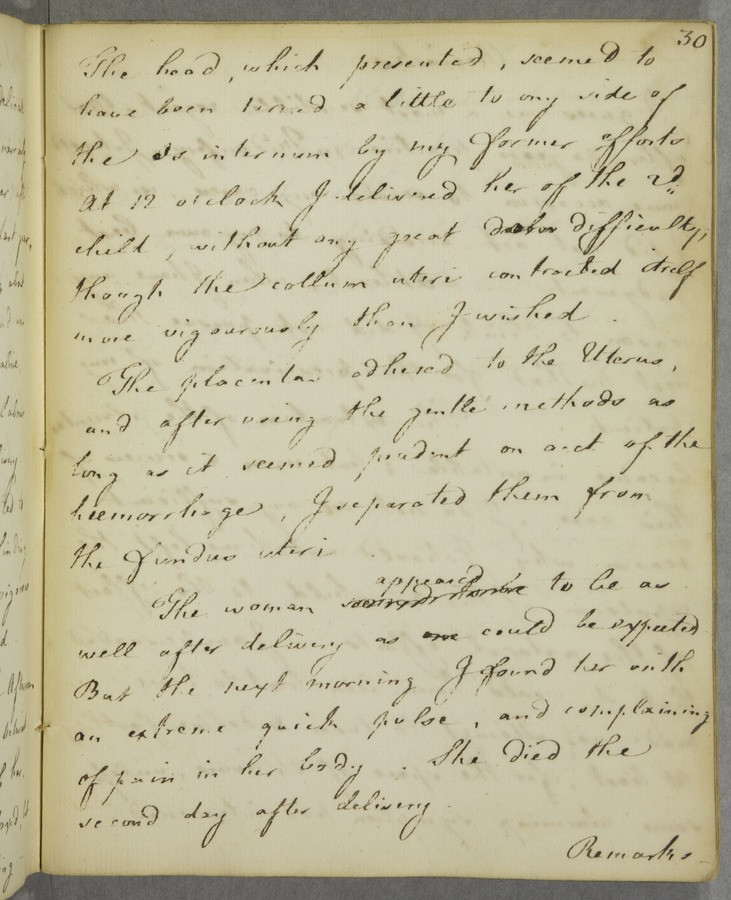 30
The head, which presented, seemed to
have been turned a little to one side of
the Os internum by my former efforts
At 12 o'clock I delivered her of the 2d.
child, without any great difficulty,
though the collum uteri contracted itself
more vigourously than I wished.
The placentas adhered to the Uterus,
and after using the gentle methods as
long as it seemed prudent on acct of the
hœmorrhage, I separated them from
the fundus uteri.
The woman appeared to be as
well after delivery as could be expected
But the next morning I found her with
an extreme quick pulse, and complaining
of pain in her body. She died the
second day after delivery.
Remarks